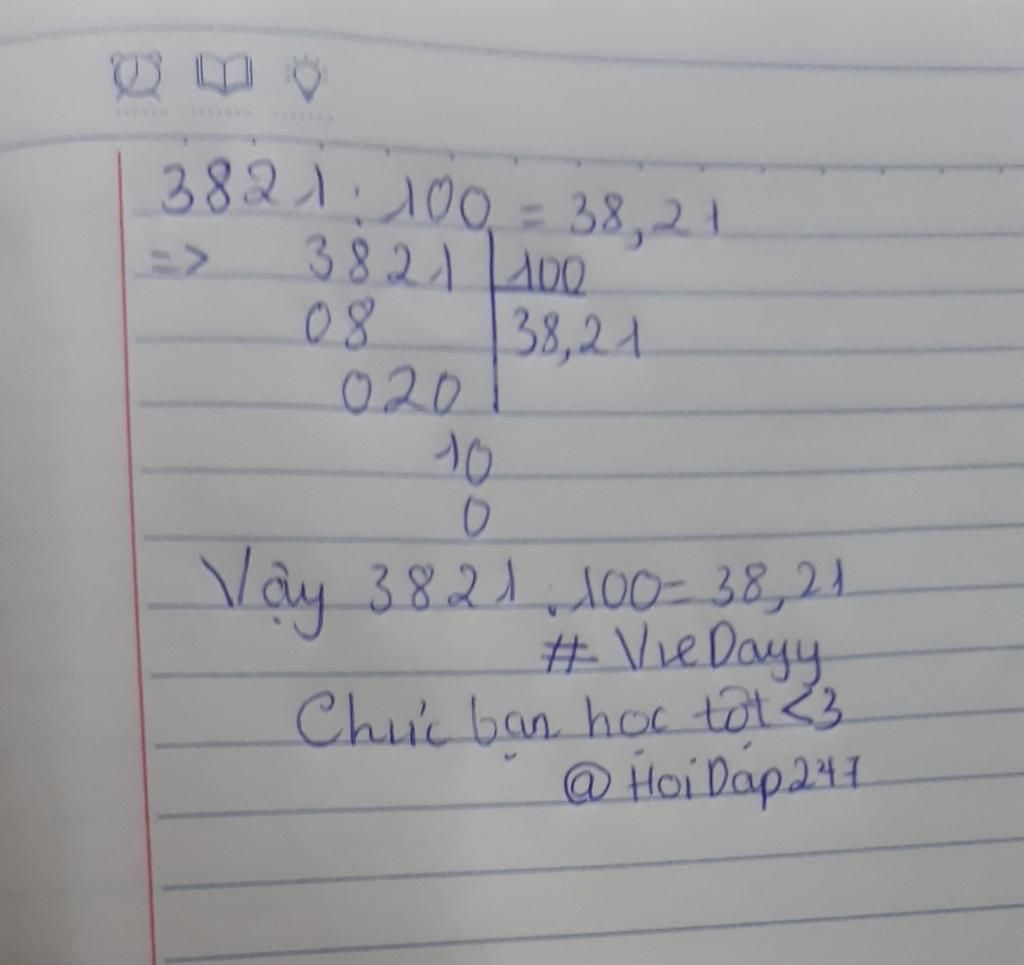 3821 : 100 = 38,21
=> 3821 | 100
08 | 38,21
020
10
0
Vậy 3821 : 100 = 38,21
# VieDayy
Chúc bạn học tốt <3
@HoiDap247